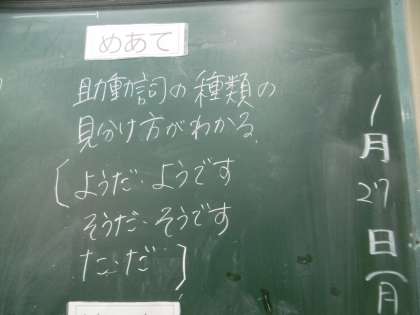 めあて
助動詞の種類の
見分け方がわかる。
(ようだ・ようです
そうだ・そうです
た・だ]
1月27日(月